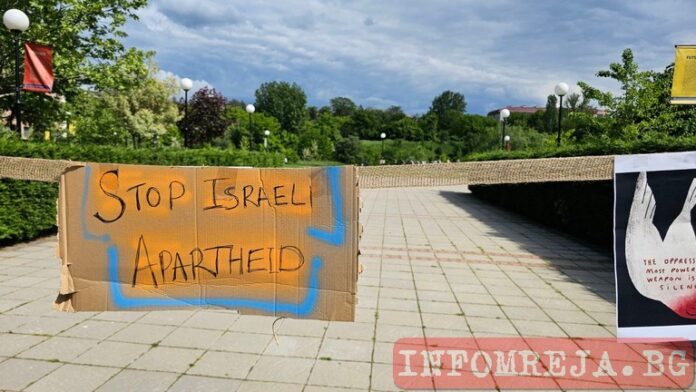 STOP ISRAELI
APARTHEID
THE OPPRESS
MOST POWER
WEAPON IS
SILEN
INFOMREJA.BG